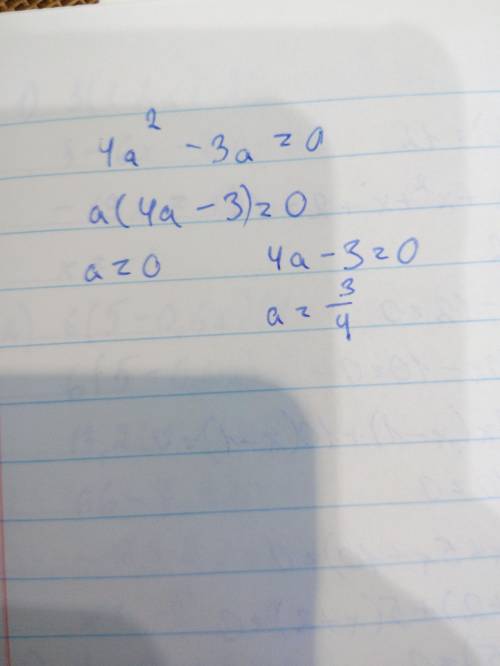 4a² - 3a = 0
a(4a - 3) = 0
a = 0    4a - 3 = 0
a = 3/4